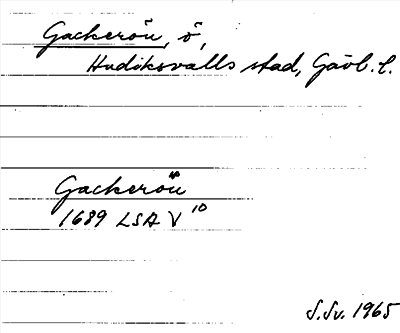 Gackerön, ö,
Hudiksvalls stad, Gävl. l.
Gackerön
1689 LSA V 10
S.Sv. 1965